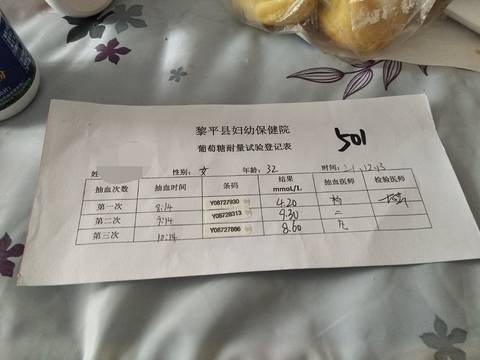 黎平县妇幼保健院
葡萄糖耐量试验登记表
501
姓 性别：女 年龄：32 时间：
抽血次数 抽血时间 条码 结果 mmoL/L 抽血医师 检验医师
第一次 8:14 Y08727930 4.20 杨
第二次 9:14 Y08728313 9.30 二
第三次 10:14 Y08727886 8.60